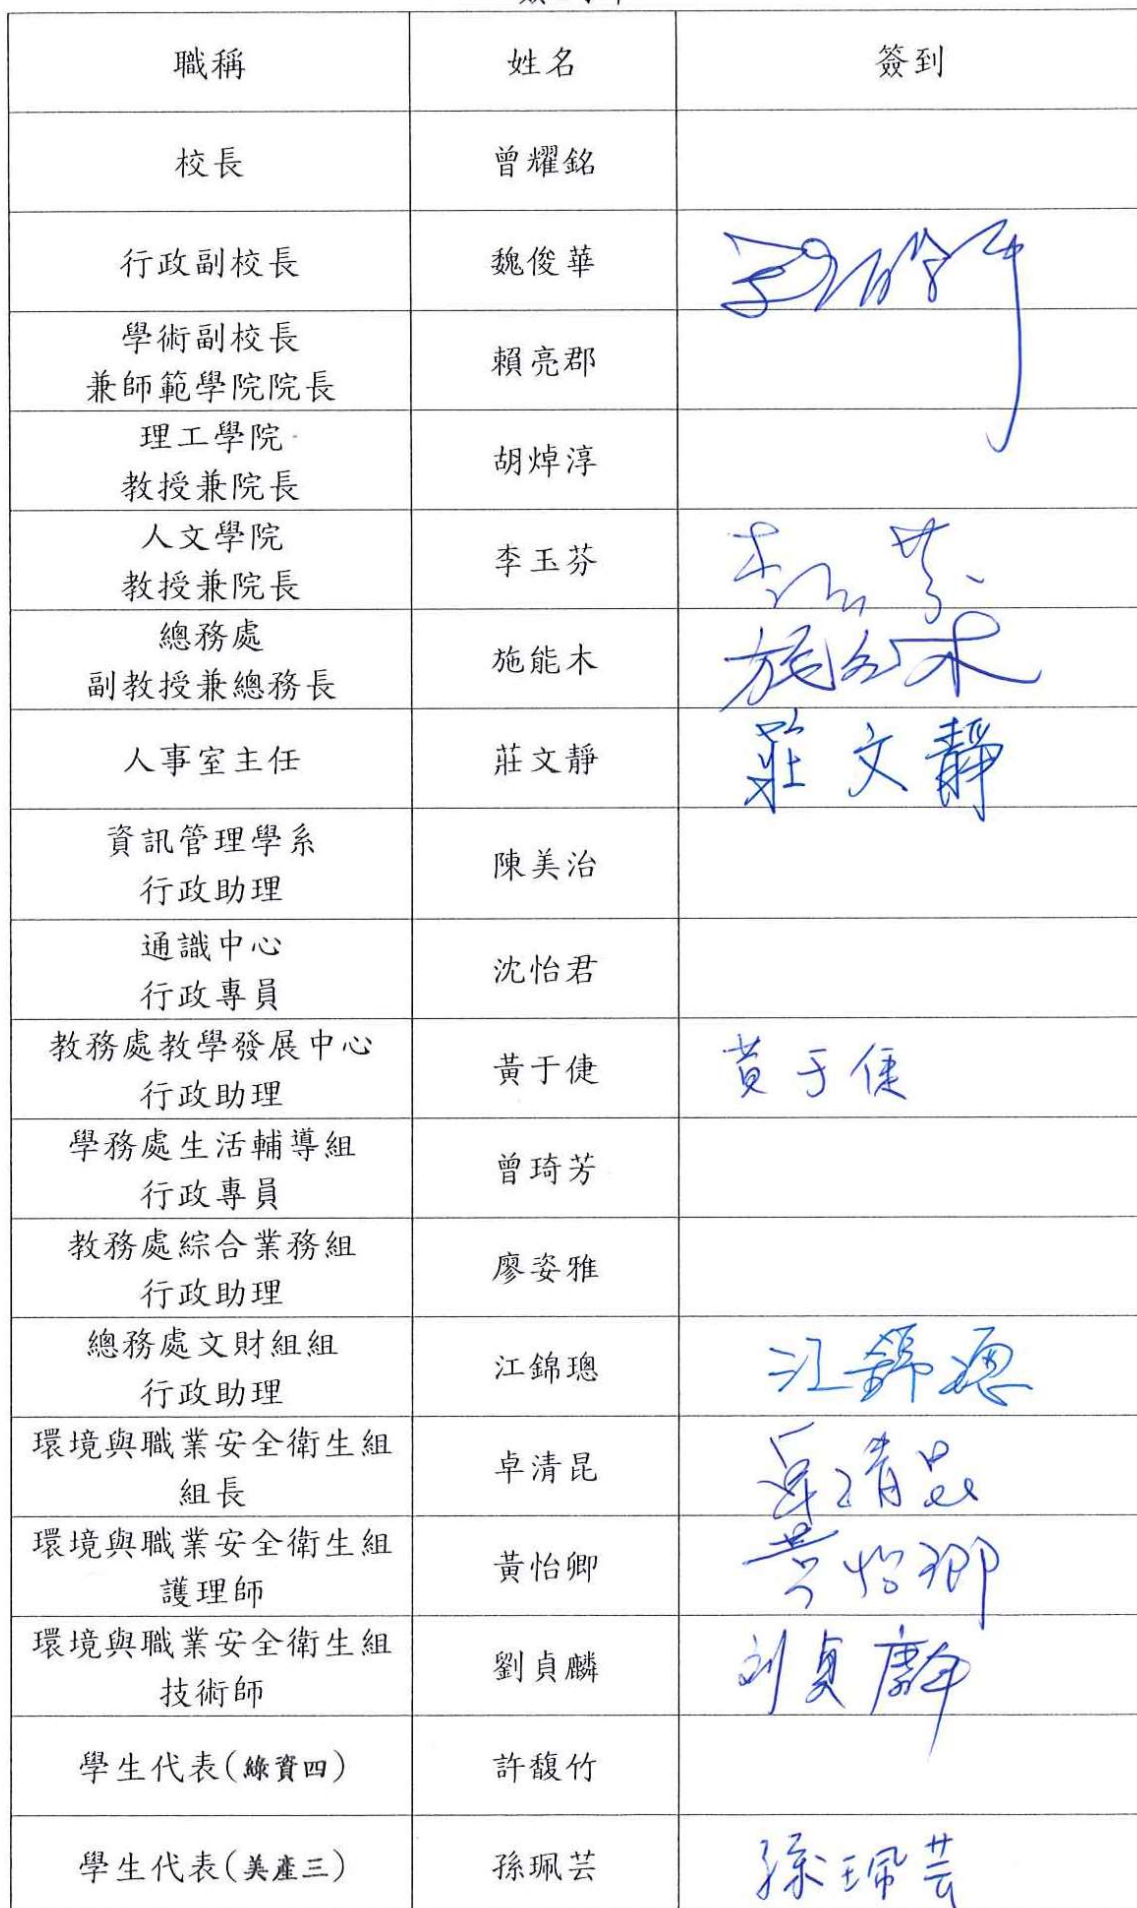 職稱 姓名 簽到
校長 曾耀銘
行政副校長 魏俊華
學術副校長
兼師範學院院長 賴亮郡
理工學院
教授兼院長 胡焯淳
人文學院
教授兼院長 李玉芬
總務處
副教授兼總務長 施能木 施能木
人事室主任 莊文靜 莊文靜
資訊管理學系
行政助理 陳美治
通識中心
行政專員 沈怡君
教務處教學發展中心
行政助理 黃于倢 黃于倢
學務處生活輔導組
行政專員 曾琦芳
教務處綜合業務組
行政助理 廖姿雅
總務處文財組組
行政助理 江錦璁 江錦璁
環境與職業安全衛生組
組長 卓清昆 卓清昆
環境與職業安全衛生組
護理師 黃怡卿 黃怡卿
環境與職業安全衛生組
技術師 劉貞麟 刘貞麟
學生代表(綠資四) 許馥竹
學生代表(美產三) 孫珮芸 孫珮芸